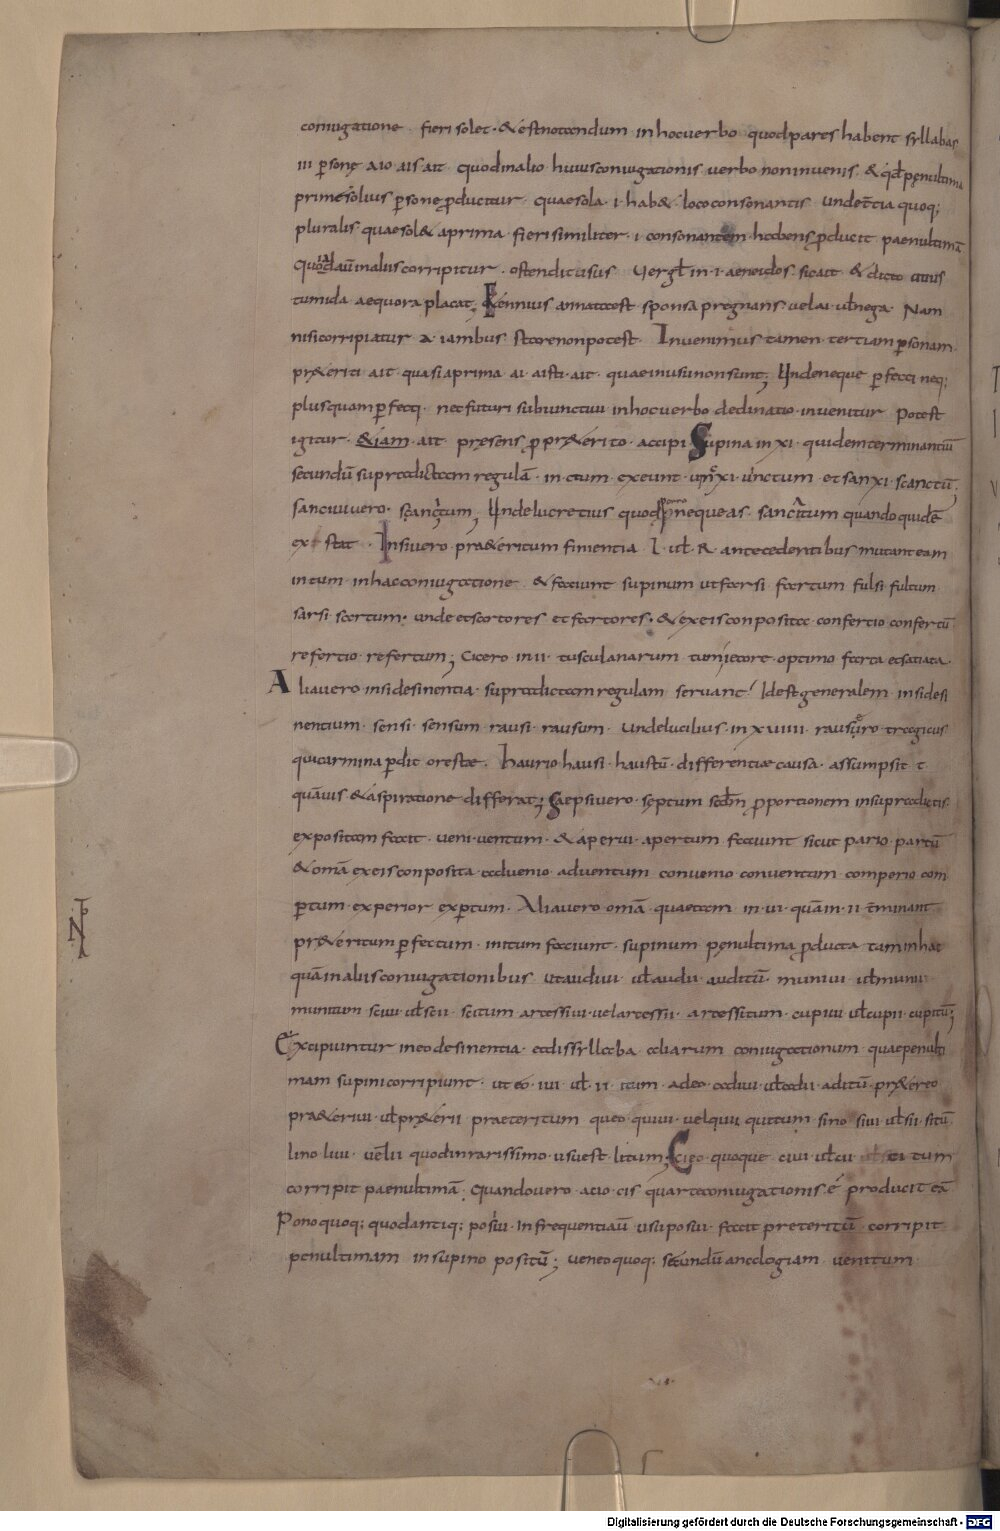 coniugatione · fieri solet · & est notandum in hoc uerbo quod pares habent syllabas
III p̱sonę aio ais ait quod in alio huius coniugationis uerbo non inuenis · & qđ pęnultima
prime solius p̱sone p̱ducitur · quae sola · i · hab& · loco consonantis unde t̄tia quoq;
pluralis quae sol& a prima · fieri similiter · i consonantem habens p̱ducit paenultimā
quia dauū in aliis corripitur · ostendit usus Uergl̄ in · i · aeneidos sic ait & dicto citius
tumida aequora placat; Ennius annatoest sponsa pregnans uel ai · ul̄ nega · Nam
nisi corripiatur a iambus stare non potest · Inuenimus tamen tertiam p̱sonam
pr&eriti ait quasi a prima ai aisti ait quae in usu non sunt; Unde neque p̱fecti neq;
plusquam p̱fecti · nec futuri subiunctiui in hoc uerbo declinatio inuenitur potest
igitur &iam ait pręsens p̱ pr&erito accipi · Supina in xi · quidem terminantiū
secundū supra dictam regulā · in ctum exeunt uinxi uinctum et sanxi sanctū;
sanciui uero · sancitum; Unde lucretius quod porro nequeas sancitum quando quidē
exstat · In si uero pra&eritum finientia · l · ul̄ · R · antecedentibus mutant eam
in tum in hac coniugatione & faciunt supinum ut farsi fartum fulsi fultum
sarsi sartum · unde et sartores et fartores · & ex eis conposita confertio confertū
refertio refertum; Cicero in ii tusculanarum tum iecore optimo farta et satiata
Alia uero in si desinentia supra dictam regulam seruant Idest generalem in si desi
nentium sensi sensum rausi rausum unde lucibus in xuiiii rausuro tragicus
qui carmina p̱dit oreste Haurio hausi haustū differentiae causa assumpsit t
quāuis & aspiratione differat; Saepsi uero sęptum scd̄m p̱portionem in supra dictis
expositam facit · ueni uentum & aperui apertum faciunt sicut pario partū
& omā ex eis conposita aduenio aduentum conuenio conuentum comperio com
p̱tum experior exp̱tum · Alia uero omā quae tam in ui quā in ii t̄minant
pr&eritum p̱fectum in itum faciunt supinum pęnultima p̱ducta tam in hac
quā in aliis coniugationibus ut audiui ul̄ audii auditū muniui ul̄ munii
munitum sciui ul̄ scii scitum arcessiui uel arcessii arcessitum cupiui ul̄ cupii cupitū;
Excipiuntur in eo desinentia a dissyllaba aliarum coniugationum quae penulti
mam supini corripiunt ut eo iui ul̄ ii itum adeo adiui ul̄ adii aditū pr&ereo
pra&eriui ul̄ pr&erii praeteritum queo quiui uel quii quitum sino siui ul̄ sii sitū
lino liui uel lii quod in rarissimo usu est litum; Cieo quoque ciui ul̄ cii citum
corripit paenultimā; Quando uero cio cis quarte coniugationis ē producit eā
Pono quoq; quod antiq; posiui In frequenti aū usu posui facit preteritū corripit
penultimam in supino positū; ueneo quoq; secundū analogiam uenitum
Digitalisierung gefördert durch die Deutsche Forschungsgemeinschaft - DFG